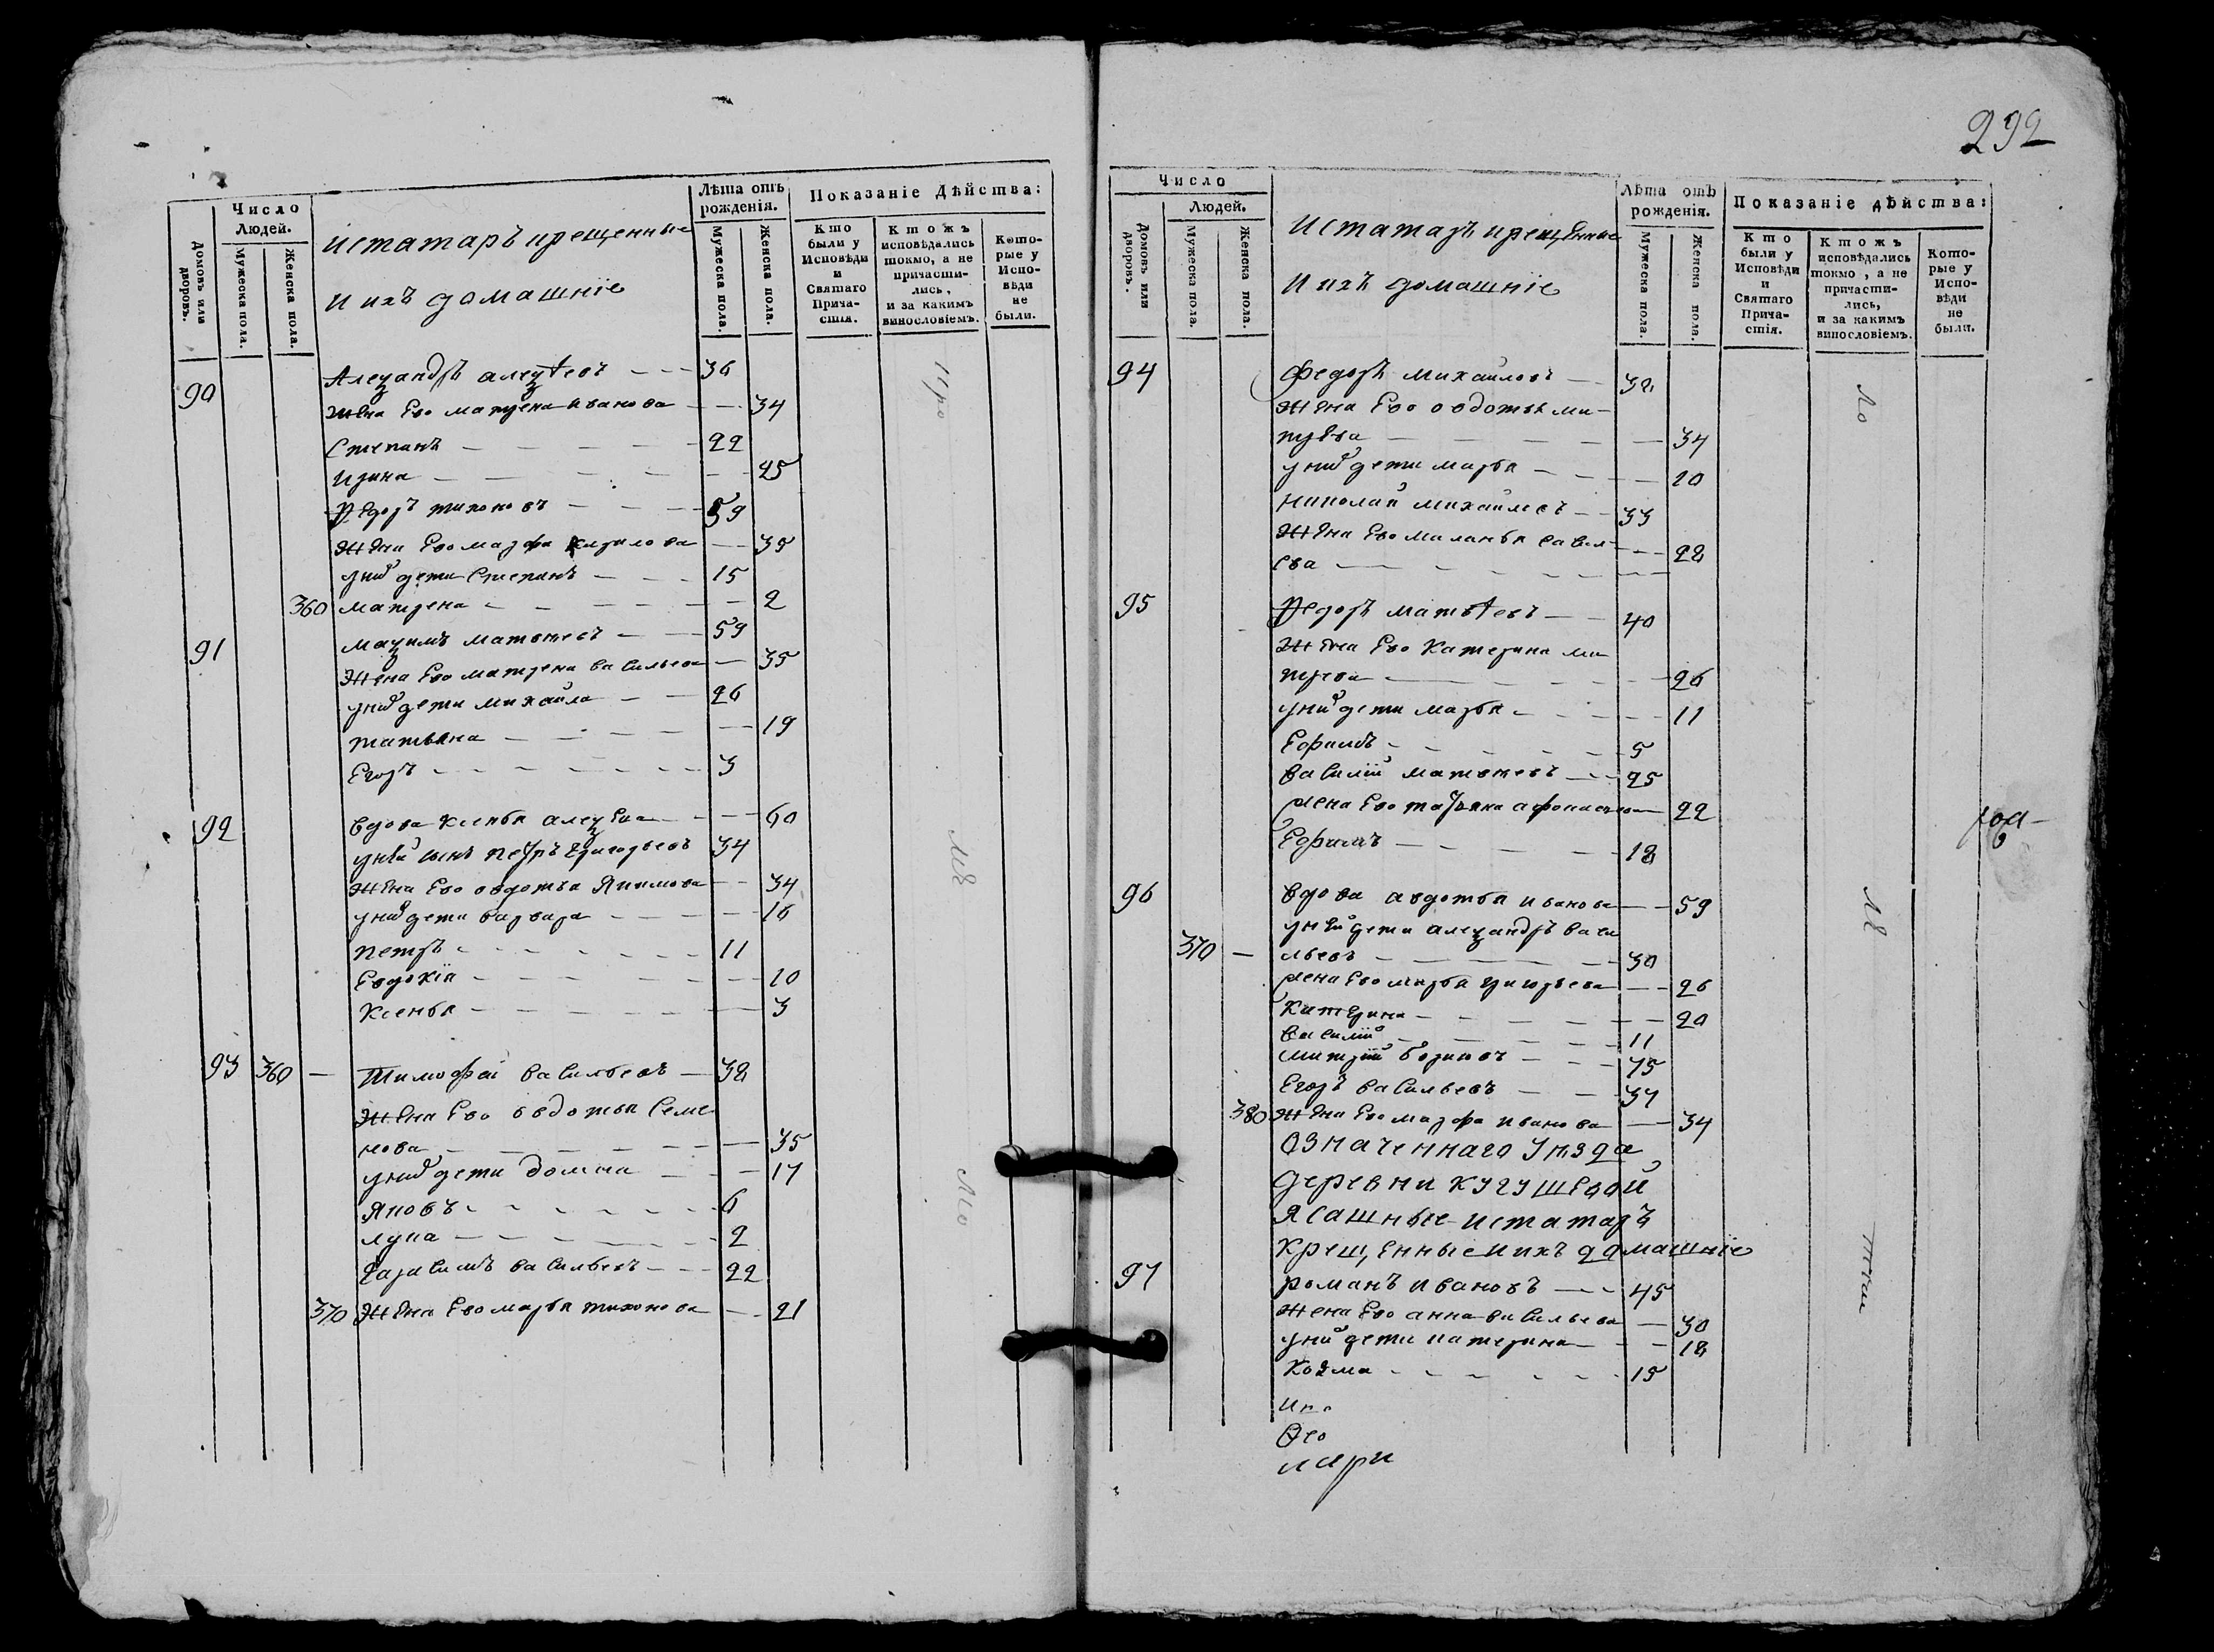 Число
Людей.
Домовъ или дворовъ.
Мужеска пола.
Женска пола.
истатаръ крещенные
и ихъ домашнiе
Лѣта отъ рожденiя.
Мужеска пола.
Женска пола.
Показанiе Дѣйства:
Кто были у Исповѣди и Святаго Прича-стiя.
Ктожъ исповѣдались токмо, а не причасти-лись, и за какимъ винословiемъ.
Кото-рые у Испо-вѣди не были.
90 Александръ алеѯѣевъ 36
жена Ево матрена иванова 34
Степанъ 22
ирина 25
Ѳедоръ тихоновъ 59
жена Ево марфа кирилова 35
у них дети Степанъ 15
360 матрена 2
91 маѯимъ матвѣевъ 59
жена Ево матрена васильева 35
у них дети михайла 26
татьяна 19
Егоръ 3
92 вдова ксенья алеѯѣева 60
у ней сынъ петръ григорьевъ 34
жена Ево овдотья Якимова 34
у них дети варвара 16
петръ 11
Евдокiя 10
Ксенья 3
93 360 Тимофѣй васильевъ 38
жена Ево овдотья Семе
нова 35
у них дети домна 17
Яковъ 6
лука 2
герасимъ васильевъ 22
370 жена Ево марья тихонова 21
292
Число
Людей.
Домовъ или дворовъ.
Мужеска пола.
Женска пола.
истатаръ крещенные
и ихъ домашнiе
Лѣта отъ рожденiя.
Мужеска пола.
Женска пола.
Показанiе дѣйства:
Кто были у Исповѣди и Святаго Прича-стiя.
Ктожъ исповѣдались токмо, а не причасти-лись, и за какимъ винословiемъ.
Кото-рые у Испо-вѣди не были.
94 Федоръ михайловъ 38
жена Ево овдотья ми
трѣва 34
у них дети марья 10
николай михайловъ 33
жена Ево миланья савел
ева 28
95 Ѳедоръ матвѣевъ 40
жена Ево Катерина ми
трева 26
у них дети марья 11
Ефимъ 5
василiй матвѣевъ 25
жена Ево татьяна афонасьева 22
Ефимъ 18
96 вдова авдотья иванова 59
у ней дети алеѯандръ васи
370 льевъ 30
жена Ево марья григорьева 26
Катерина 20
василiй 11
митрiй 75
Егоръ васильевъ 37
380 жена Ево марфа иванова 34
Означеннаго уѣзда
деревни кугушевой
ясашные истатаръ
крещенные и ихъ домашнiе
97 романъ ивановъ 45
жена Ево анна васильева 30
у них дети катерина 18
Козма 15